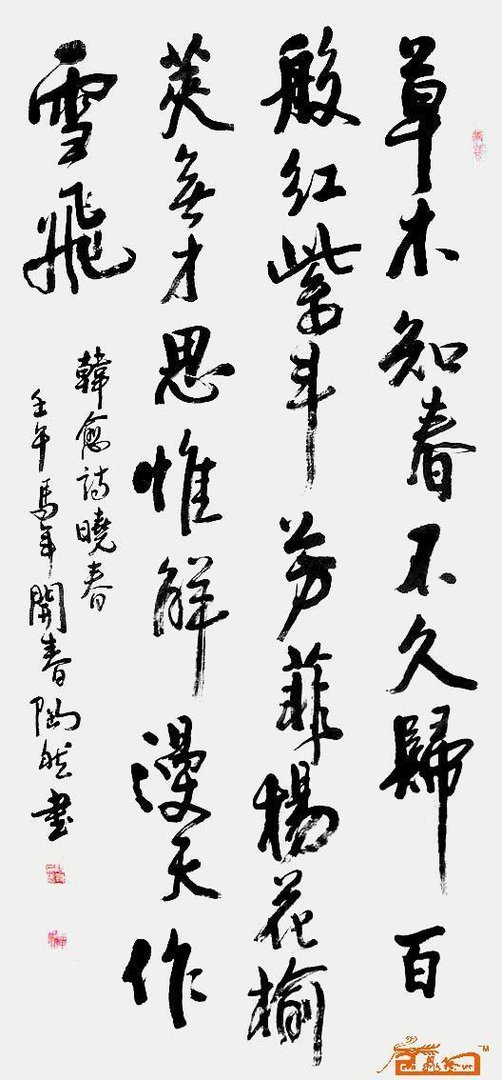 草木知春不久歸百
般紅紫斗芳菲楊花榆
莢無才思惟解漫天作
雪飛
韓愈詩曉春
壬午馬年開春陶然書